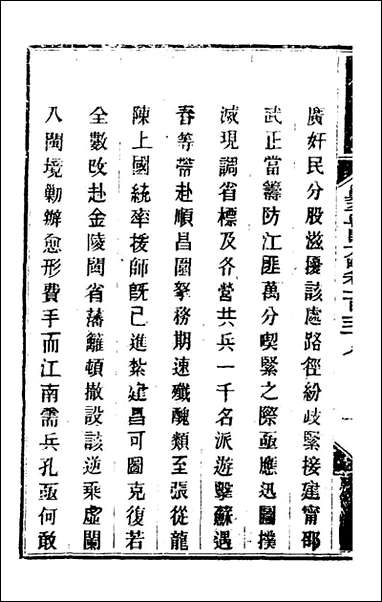 廣奸民分股滋擾該處路徑紛歧緊接建甯邵
武正當籌防江匪萬分喫緊之際亟應迅圖撲
滅現調省標及各營共兵一千名派遊擊蘇遇
春等帶赴順昌圍拏務期速殲醜類至張從龍
陳上國統率援師旣已進紮建昌可圖克復若
全數改赴金陵閩省藩籬頓撤設該逆乘虛闌
入閩境勦辦愈形費手而江南需兵孔亟何敢